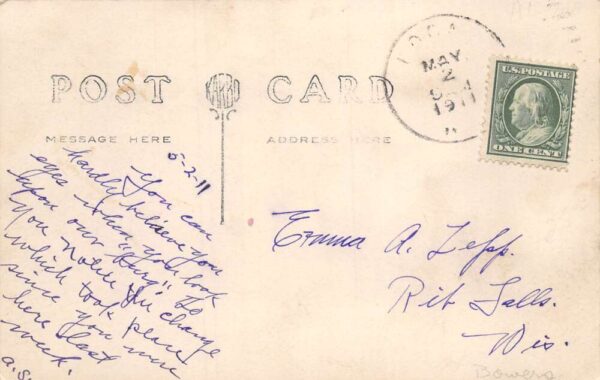 POST CARD
MESSAGE HERE
ADDRESS HERE
MAY
2
1911
U.S. POSTAGE
ONE CENT
5-2-11
You can
hardly believe your
eyes when you look
upon our "City" Do
you notice the change
which took place
since you were
here last
week.
a.S.
Emma A. Zepp.
Rib Falls.
Wis.
Bowers